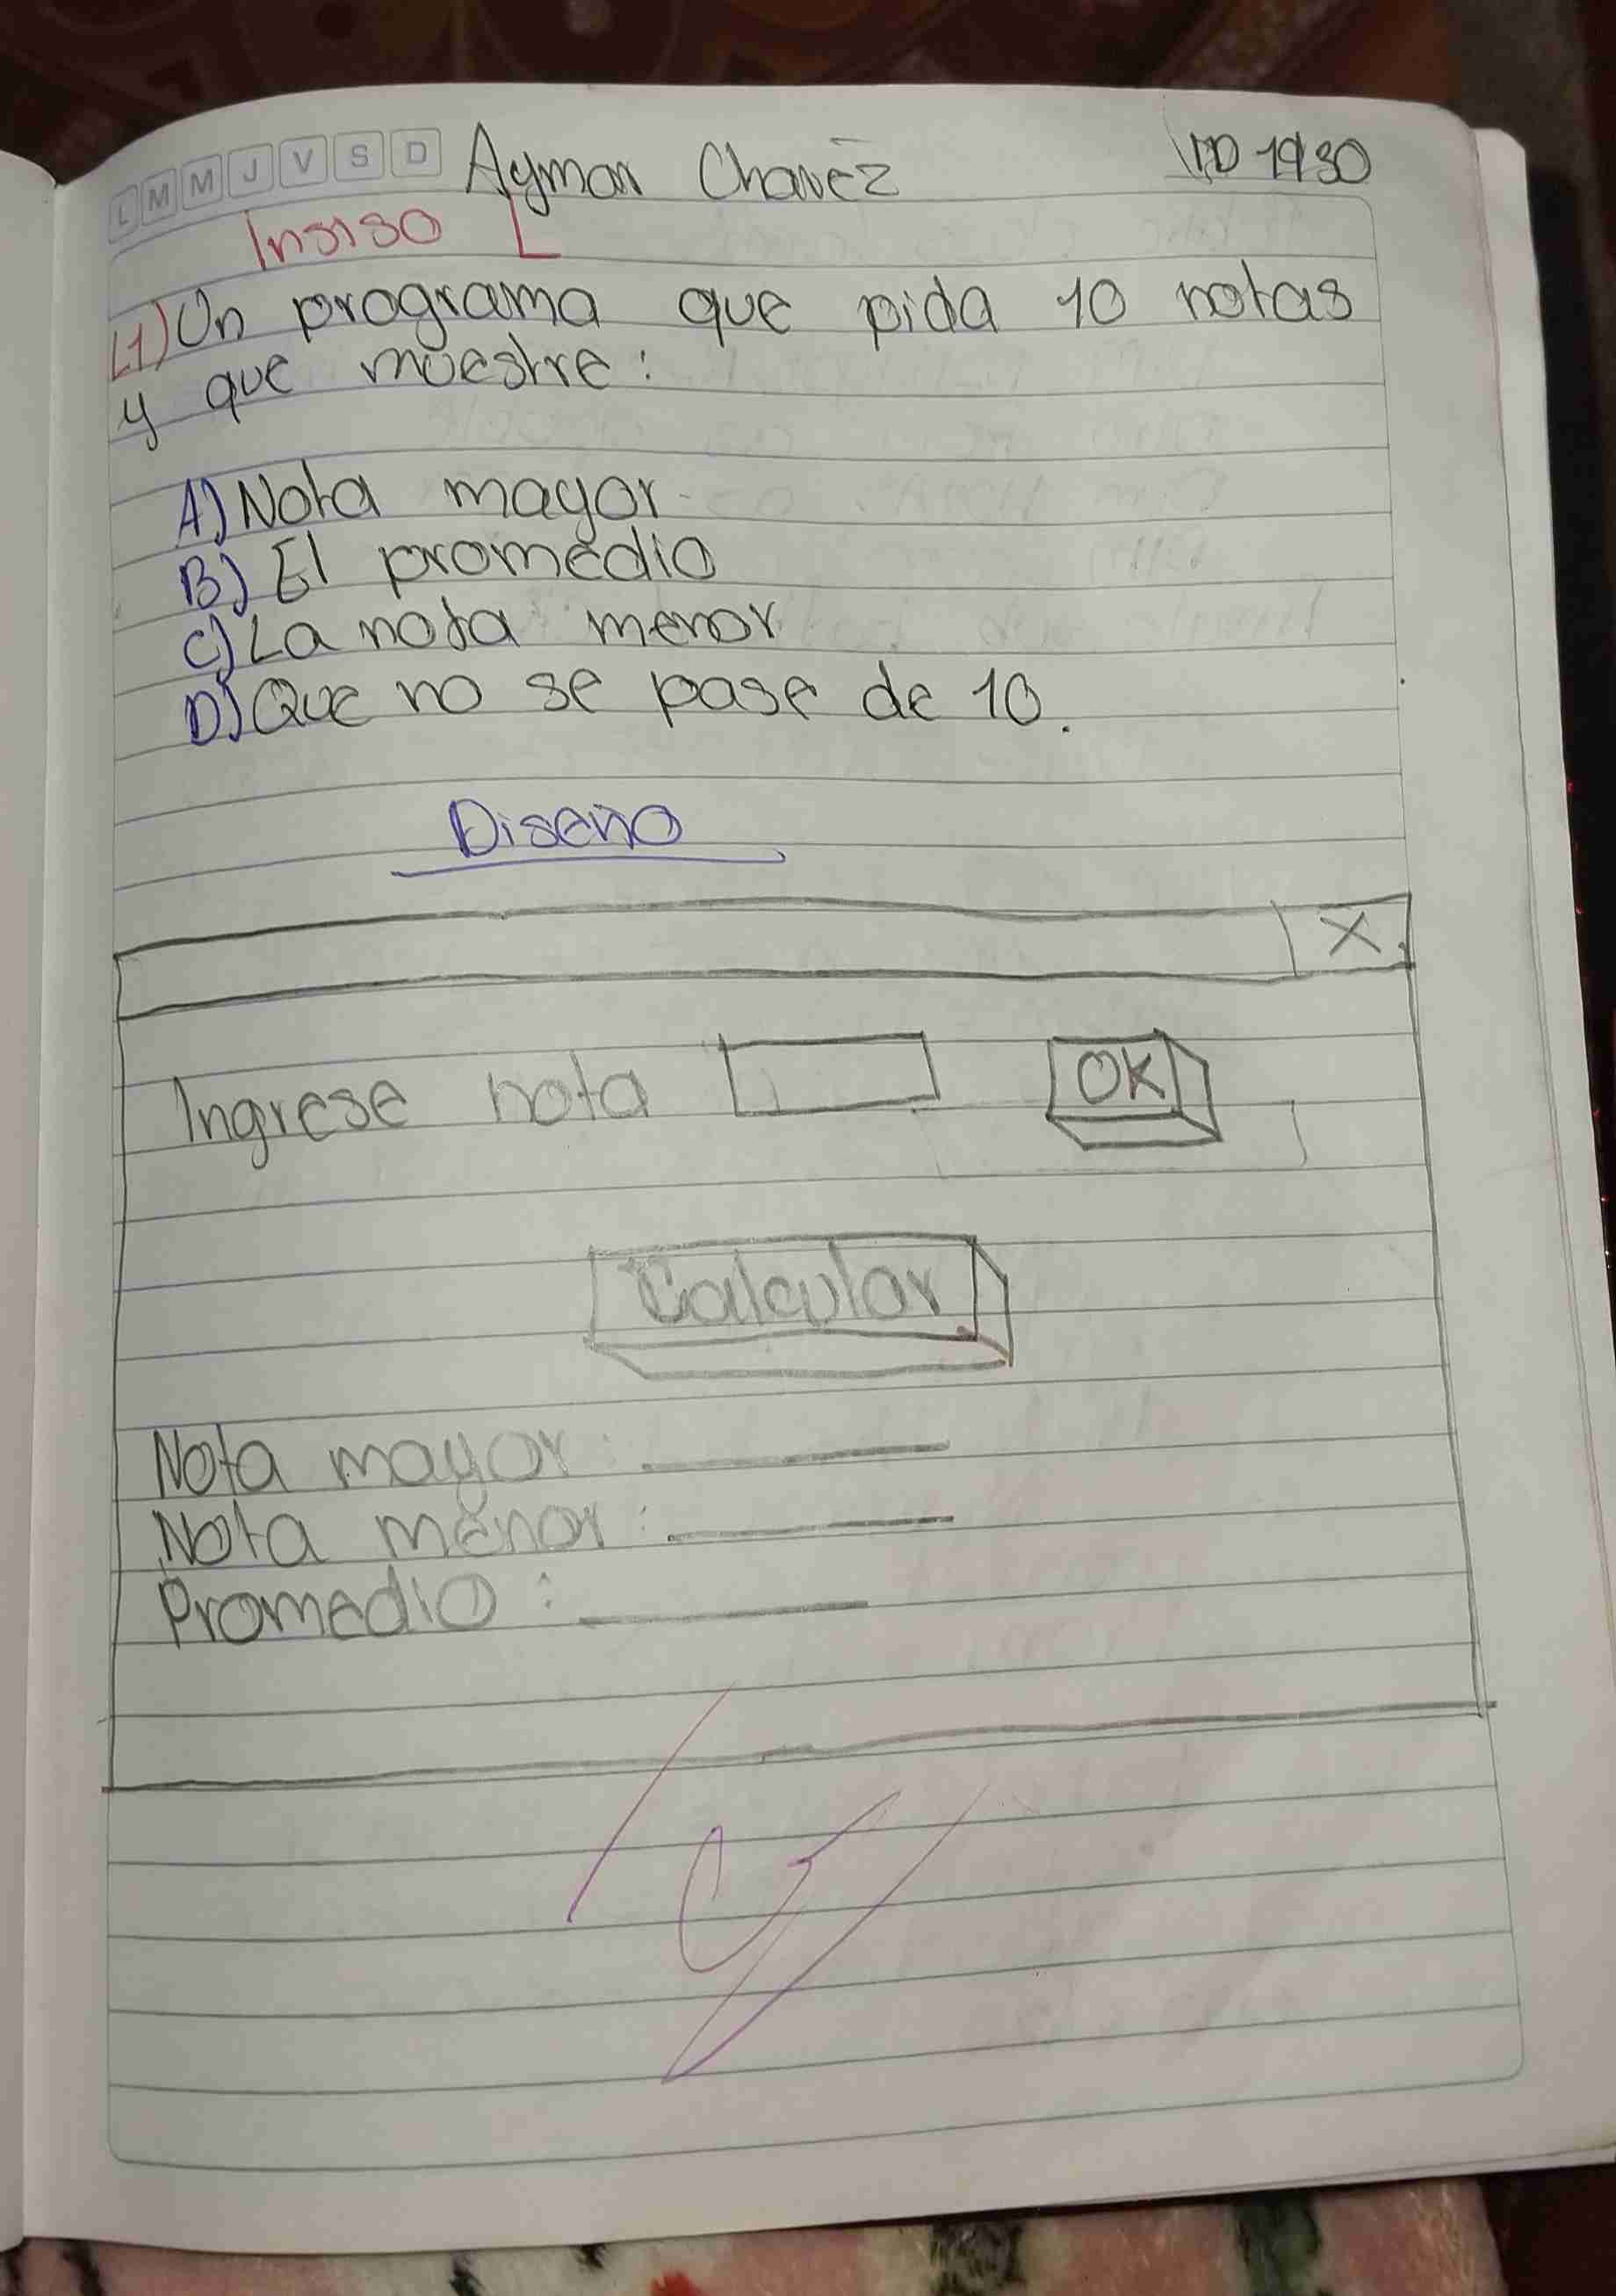 L M M J V S D Aymar Chavez
Insiso L
L1) Un programa que pida 10 notas
y que muestre:
A) Nota mayor
B) El promedio
C) La nota menor
D) Que no se pase de 10.
Diseño
X
Ingrese nota OK
Calcular
Nota mayor:
Nota menor:
Promedio: